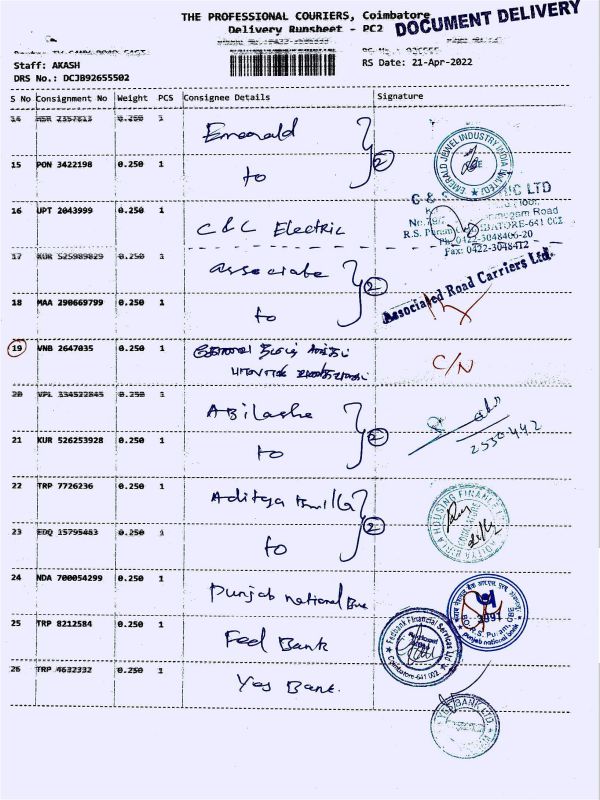 THE PROFESSIONAL COURIERS, Coimbatore
Delivery Runsheet - PC2
DOCUMENT DELIVERY
Staff: AKASH
RS Date: 21-Apr-2022
DRS No.: DCJB92655502
S No Consignment No Weight PCS Consignee Details Signature
14 0.250 1 Emerald
2
15 PON 3422198 0.250 1 to
EMERALD JEWEL INDUSTRY INDIA LIMITED
16 UPT 2043999 0.250 1 C&C Electric
LTD
Road
R.S. Puram 641 002
Ph: 0422-3048406-20
Fax: 0422-3048412
17 KUR 525989829 0.250 1 associate
2
18 MAA 290669799 0.250 1 to
Associated Road Carriers Ltd.
19 VNB 2647035 0.250 1
C/N
20 VPL 334522845 0.250 1 Abilashe
2
21 KUR 526253928 0.250 1 to
2530442
22 TRP 7726236 0.250 1 Aditya Birla
2
23 EDQ 15795483 0.250 1 to
ADITYA BIRLA HOUSING FINANCE
24 NDA 700054299 0.250 1 Punjab national
3991
punjab national bank
25 TRP 8212584 0.250 1 Fed Bank
Fedbank Financial Services Ltd
Coimbatore-641 002
26 TRP 4632332 0.250 1 Yes Bank.
YES BANK LTD.